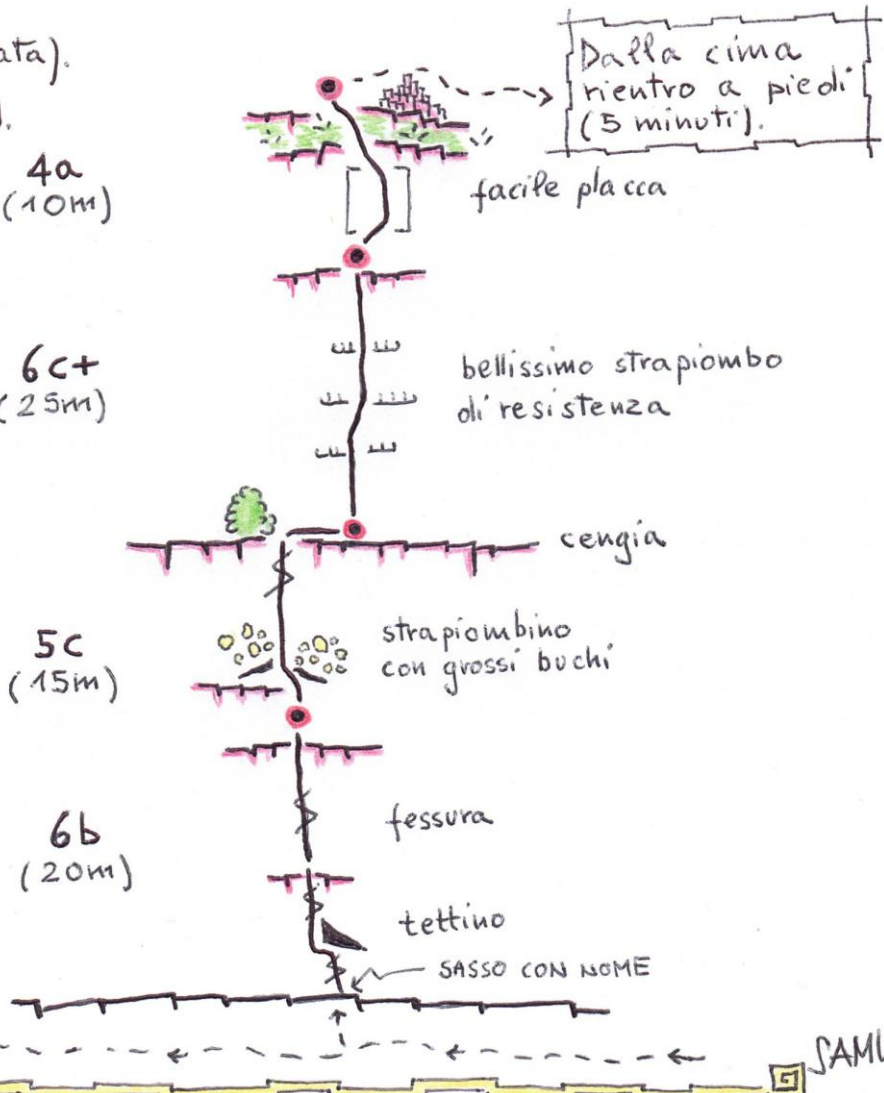 Dalla cima
rientro a piedi
(5 minuti).
4a
(10m)
facile placca
6c+
(25m)
bellissimo strapiombo
di resistenza
cengia
5c
(15m)
strapiombino
con grossi buchi
6b
(20m)
fessura
tettino
SASSO CON NOME